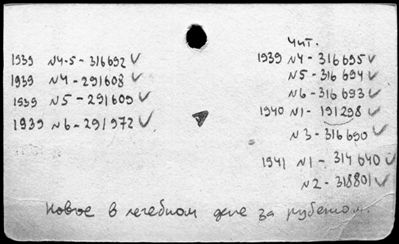 1939 №4-5 - 316692 ✓
1939 №4 - 291608 ✓
1939 №5 - 291609 ✓
1939 №6 - 291972 ✓
Чит.
1939 №4 - 316695 ✓
№5 - 316694 ✓
№6 - 316693 ✓
1940 №1 - 191298 ✓
№3 - 316690 ✓
1941 №1 - 314640 ✓
№2 - 318801 ✓
Новое в лечебном деле за рубежом.